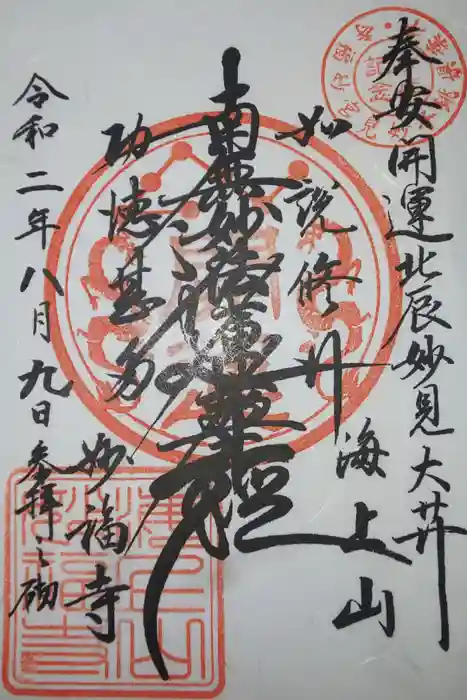 奉安開運北辰妙見大菩薩
海上山
如説修行
南無妙法蓮華経
功徳甚多
妙福寺
令和二年八月九日
参拝之砌
海上山
妙福寺